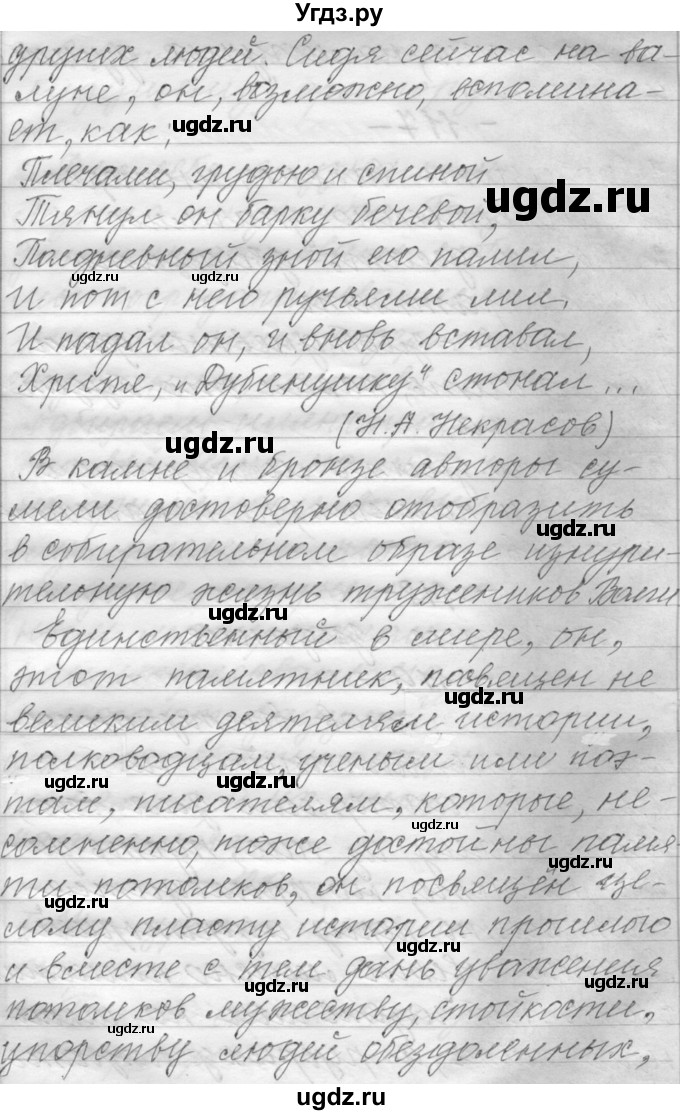 Угдз.ру
других людей. Сидя сейчас на ва-
луне, он, возможно, вспомина-
ет, как,
ugdz.ru
Плечами, грудью и спиной
ugdz.ru
Тянул он барку бечевой,
Полдневный зной его палил,
ugdz.ru ugdz.ru
И пот с него ручьями лил.
И падал он, и вновь вставал,
Хрипя, „Дубинушку“ стонал...
(Н.А. Некрасов)
ugdz.ru
В камне и бронзе авторы су-
мели достоверно отобразить
ugdz.ru
в собирательном образе изнури-
тельную жизнь тружеников Волги
ugdz.ru
Единственный в мире, он,
этот памятник, посвящен не
ugdz.ru
великим деятелям истории,
полководцам, ученым или поэ-
ugdz.ru ugdz.ru
там, писателям, которые, не-
ugdz.ru
сомненно, тоже достойны памя-
ugdz.ru
ти потомков, он посвящён це-
ugdz.ru
лому пласту истории прошлого
ugdz.ru
и вместе с тем дань уважения
ugdz.ru ugdz.ru
потомков мужеству, стойкости,
ugdz.ru
упорству людей обездоленных,
ugdz.ru